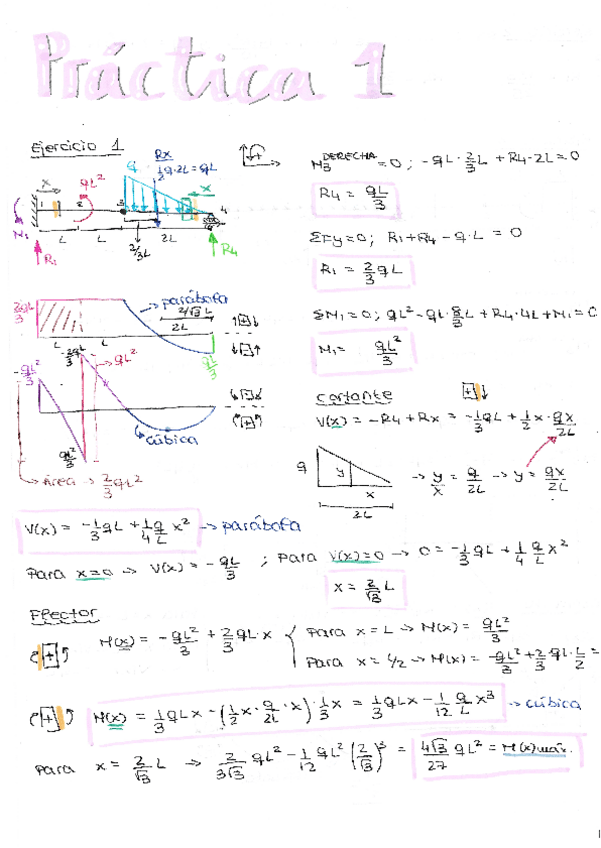 Práctica 1
Ejercicio 1
q
Rx
½q·2L = qL
x
qL²
x
1 2 3 4
M₁
R₁
L L 2L
2/3L
R₄
M₃ DERECHA = 0; -qL · 2/3 L + R₄·2L = 0
R₄ = qL/3
ΣFy = 0; R₁ + R₄ - q·L = 0
R₁ = 2/3 qL
ΣM₁ = 0; qL² - qL·8/3 L + R₄·4L + M₁ = 0
M₁ = qL²/3
2qL/3
parábola
2/√3 L
2L
L L
qL/3
-qL²/3
-2qL²/3
qL²
qL²/3
cúbica
Área → 2/3 qL²
Cortante
V(x) = -R₄ + Rx = -1/3 qL + 1/2 x · qx/2L
q
y
x
2L
→ y/x = q/2L → y = qx/2L
V(x) = -1/3 qL + 1/4 q/L x² → parábola
Para x=0 → V(x) = -qL/3 ; Para V(x)=0 → 0 = -1/3 qL + 1/4 q/L x²
x = 2/√3 L
Flector
M(x) = -qL²/3 + 2/3 qL·x
Para x = L → M(x) = qL²/3
Para x = L/2 → M(x) = -qL²/3 + 2/3 qL·L/2 =
M(x) = 1/3 qLx - (1/2 x · q/2L · x) · 1/3 x = 1/3 qLx - 1/12 q/L x³ → cúbica
Para x = 2/√3 L → 2/3√3 qL² - 1/12 qL² (2/√3)³ = 4√3/27 qL² = M(x)máx.